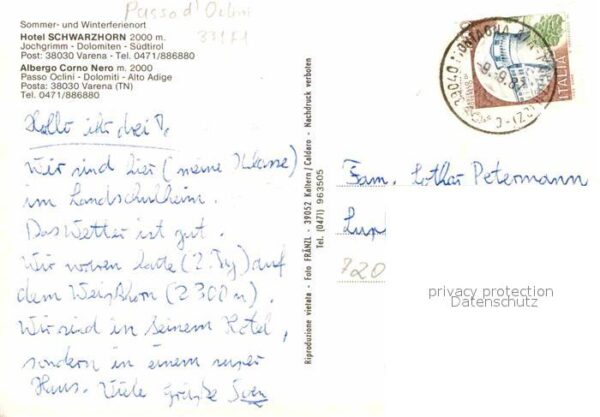 Passo d'Oclini
Sommer- und Winterferienort
Hotel SCHWARZHORN 2000 m.
Jochgrimm - Dolomiten - Südtirol
Post: 38030 Varena - Tel. 0471/886880
Albergo Corno Nero m. 2000
Passo Oclini - Dolomiti - Alto Adige
Posta: 38030 Varena (TN)
Tel. 0471/886880
Hallo ihr drei!
Wir sind hier (meine Klasse)
im Landschulheim.
Das Wetter ist gut.
Wir waren heute (2. Tag) auf
dem Weißhorn (2300 m).
Wir sind in keinem Hotel,
sondern in einem
Haus. Viele Grüße Sven
Riproduzione vietata - Foto FRÄNZL - 39052 Kaltern/Caldaro - Nachdruck verboten
Tel. (0471) 963505
ITALIA
39040
Fam. Lothar Petermann
720
privacy protection
Datenschutz